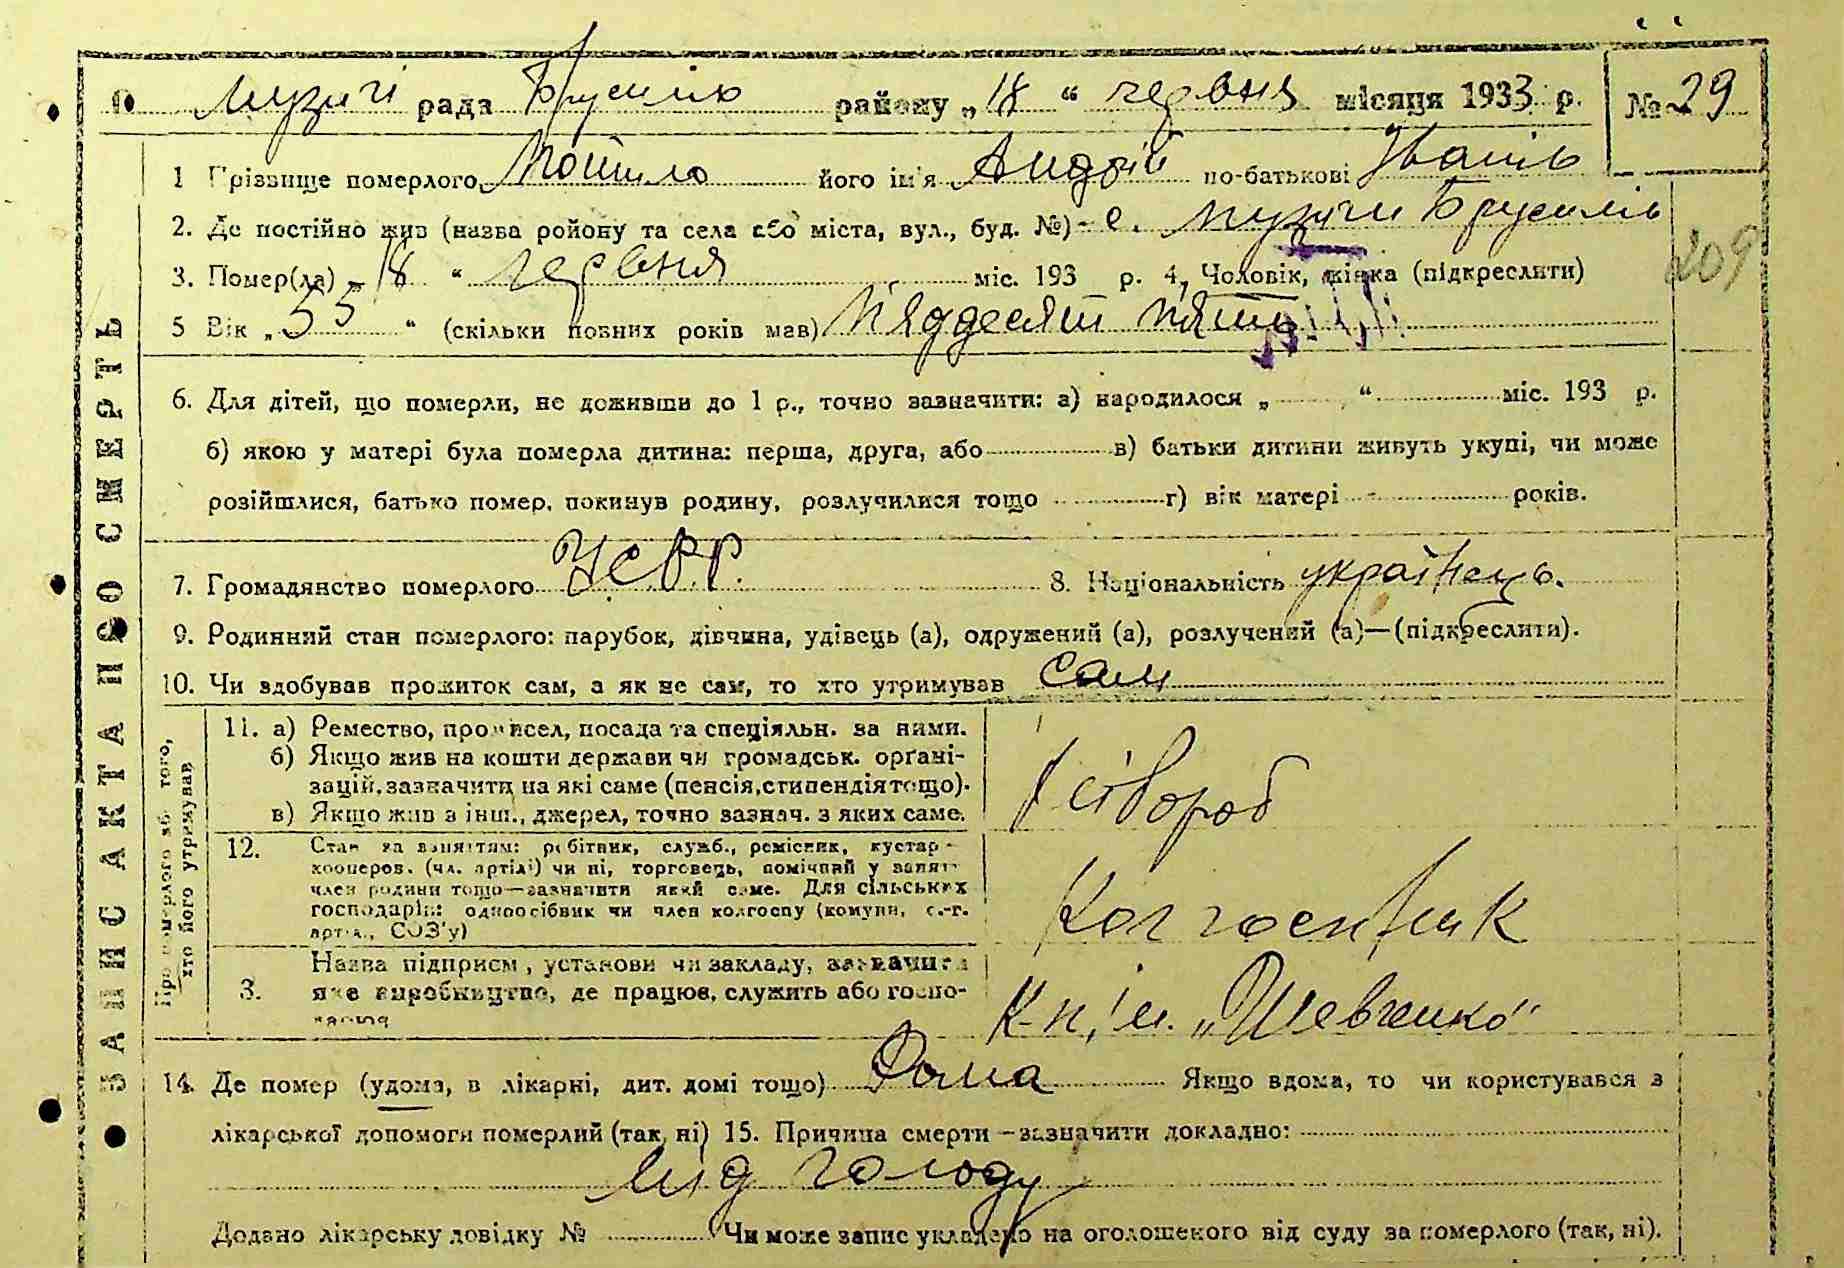 Музичі рада Брусилів району „18“ червня місяця 1933 р. № 29
1 Прізвище померлого Мошило його ім'я Андрій по-батькові Іванів
2. Де постійно жив (назва ройону та села або міста, вул., буд. №) - с. Музичи Брусилів
209
3. Помер(ла) „18“ червня міс. 193 р. 4, Чоловік, жінка (підкреслити)
5 Вік „55“ (скільки повних років мав) Пяддесят пять
6. Для дітей, що померли, не доживши до 1 р., точно зазначити: а) народилося „ “ міс. 193 р.
б) якою у матері була померла дитина: перша, друга, або в) батьки дитини живуть укупі, чи може
розійшлися, батько помер, покинув родину, розлучилися тощо г) вік матері - років.
7. Громадянство померлого УСРР. 8. Національність українець.
9. Родинний стан померлого: парубок, дівчина, удівець (а), одружений (а), розлучений (а)—(підкреслити).
10. Чи здобував прожиток сам, а як не сам, то хто утримував сам
ЗАПИС АКТА ПРО СМЕРТЬ
Про померлого або того, хто його утримував
11. а) Ремество, промисел, посада та спеціяльн. за ними.
б) Якщо жив на кошти держави чи громадськ. орґані-
зацій, зазначити на які саме (пенсія, стипендія тощо).
в) Якщо жив з інш., джерел, точно зазнач. з яких саме.
12. Стан за заняттям: робітник, служб., ремісник, кустар -
кооперов. (чл. артілі) чи ні, торговець, помічний у занят.
член родини тощо—зазначити який саме. Для сільських
господарів: одноосібник чи член колгоспу (комуни, с.-г.
арт., СОЗ'у)
Колгоспник
3. Назва підприєм, установи чи закладу, зазначити
яке виробництво, де працює, служить або госпо-
К-п, ім. „Шевченко“
14. Де помер (удома, в лікарні, дит. домі тощо) Дома Якщо вдома, то чи користувався з
лікарської допомоги померлий (так, ні) 15. Причина смерти —зазначити докладно:
від голоду
Додано лікарську довідку № Чи може запис укладено на оголошеного від суду за померлого (так, ні).